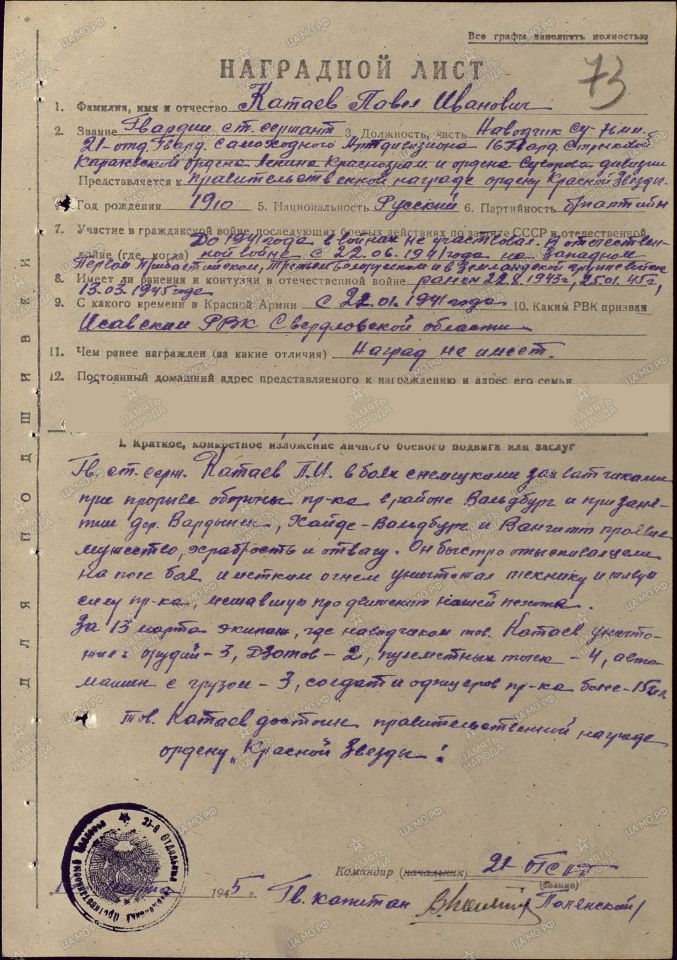 Все графы заполнить полностью
73
НАГРАДНОЙ ЛИСТ
1. Фамилия, имя и отчество Катаев Павел Иванович
2. Звание Гвардии ст. сержант 3. Должность, часть Наводчик Су-76мм.
21 отд. Гвард. Самоходного Артдивизиона 16 Гвард. Стрелковой
Карачевской ордена Ленина Краснознам. и ордена Суворова дивизии
Представляется к правительственной награде ордену Красной Звезды.
4. Год рождения 1910 5. Национальность Русский 6. Партийность б/партийн
7. Участие в гражданской войне, последующих боевых действиях по защите СССР и отечественной
До 1941 года в войнах не участвовал. В отечествен-
войне (где, когда) ной войне с 22.06.1941 года на Западном
Первом Прибалтийском, Третьем Белорусском и в Земландской группе войск
8. Имеет ли ранения и контузии в отечественной войне ранен 22.8.1943г, 25.01.45г,
13.03.1945 года
9. С какого времени в Красной Армии с 22.01.1941 года 10. Каким РВК призван
РВК Свердловской области
11. Чем ранее награжден (за какие отличия) Наград не имеет.
12. Постоянный домашний адрес представляемого к награждению и адрес его семьи
I. Краткое, конкретное изложение личного боевого подвига или заслуг
Гв. ст. серж. Катаев П.И. в боях с немецкими захватчиками
при прорыве обороны пр-ка в районе Вальдбург и при заня-
тии дер. Хайде-Вальдбург и проявил
мужество, храбрость и отвагу. Он быстро отыскивал цели
на поле боя и метким огнем уничтожал технику и живую
силу пр-ка, мешавшую продвижению нашей пехоты.
За 13 марта экипаж, где наводчиком тов. Катаев уничто-
жил: орудий - 3, ДЗОТов - 2, пулеметных точек - 4, авто
машин с грузом - 3, солдат и офицеров пр-ка более - 15 чел.
Тов. Катаев достоин правительственной награде
ордену "Красной Звезды!
ДЛЯ ПОДШИВКИ
Командир (начальник) 21
(звание)
марта 1945 г. Гв. капитан /Поленский/